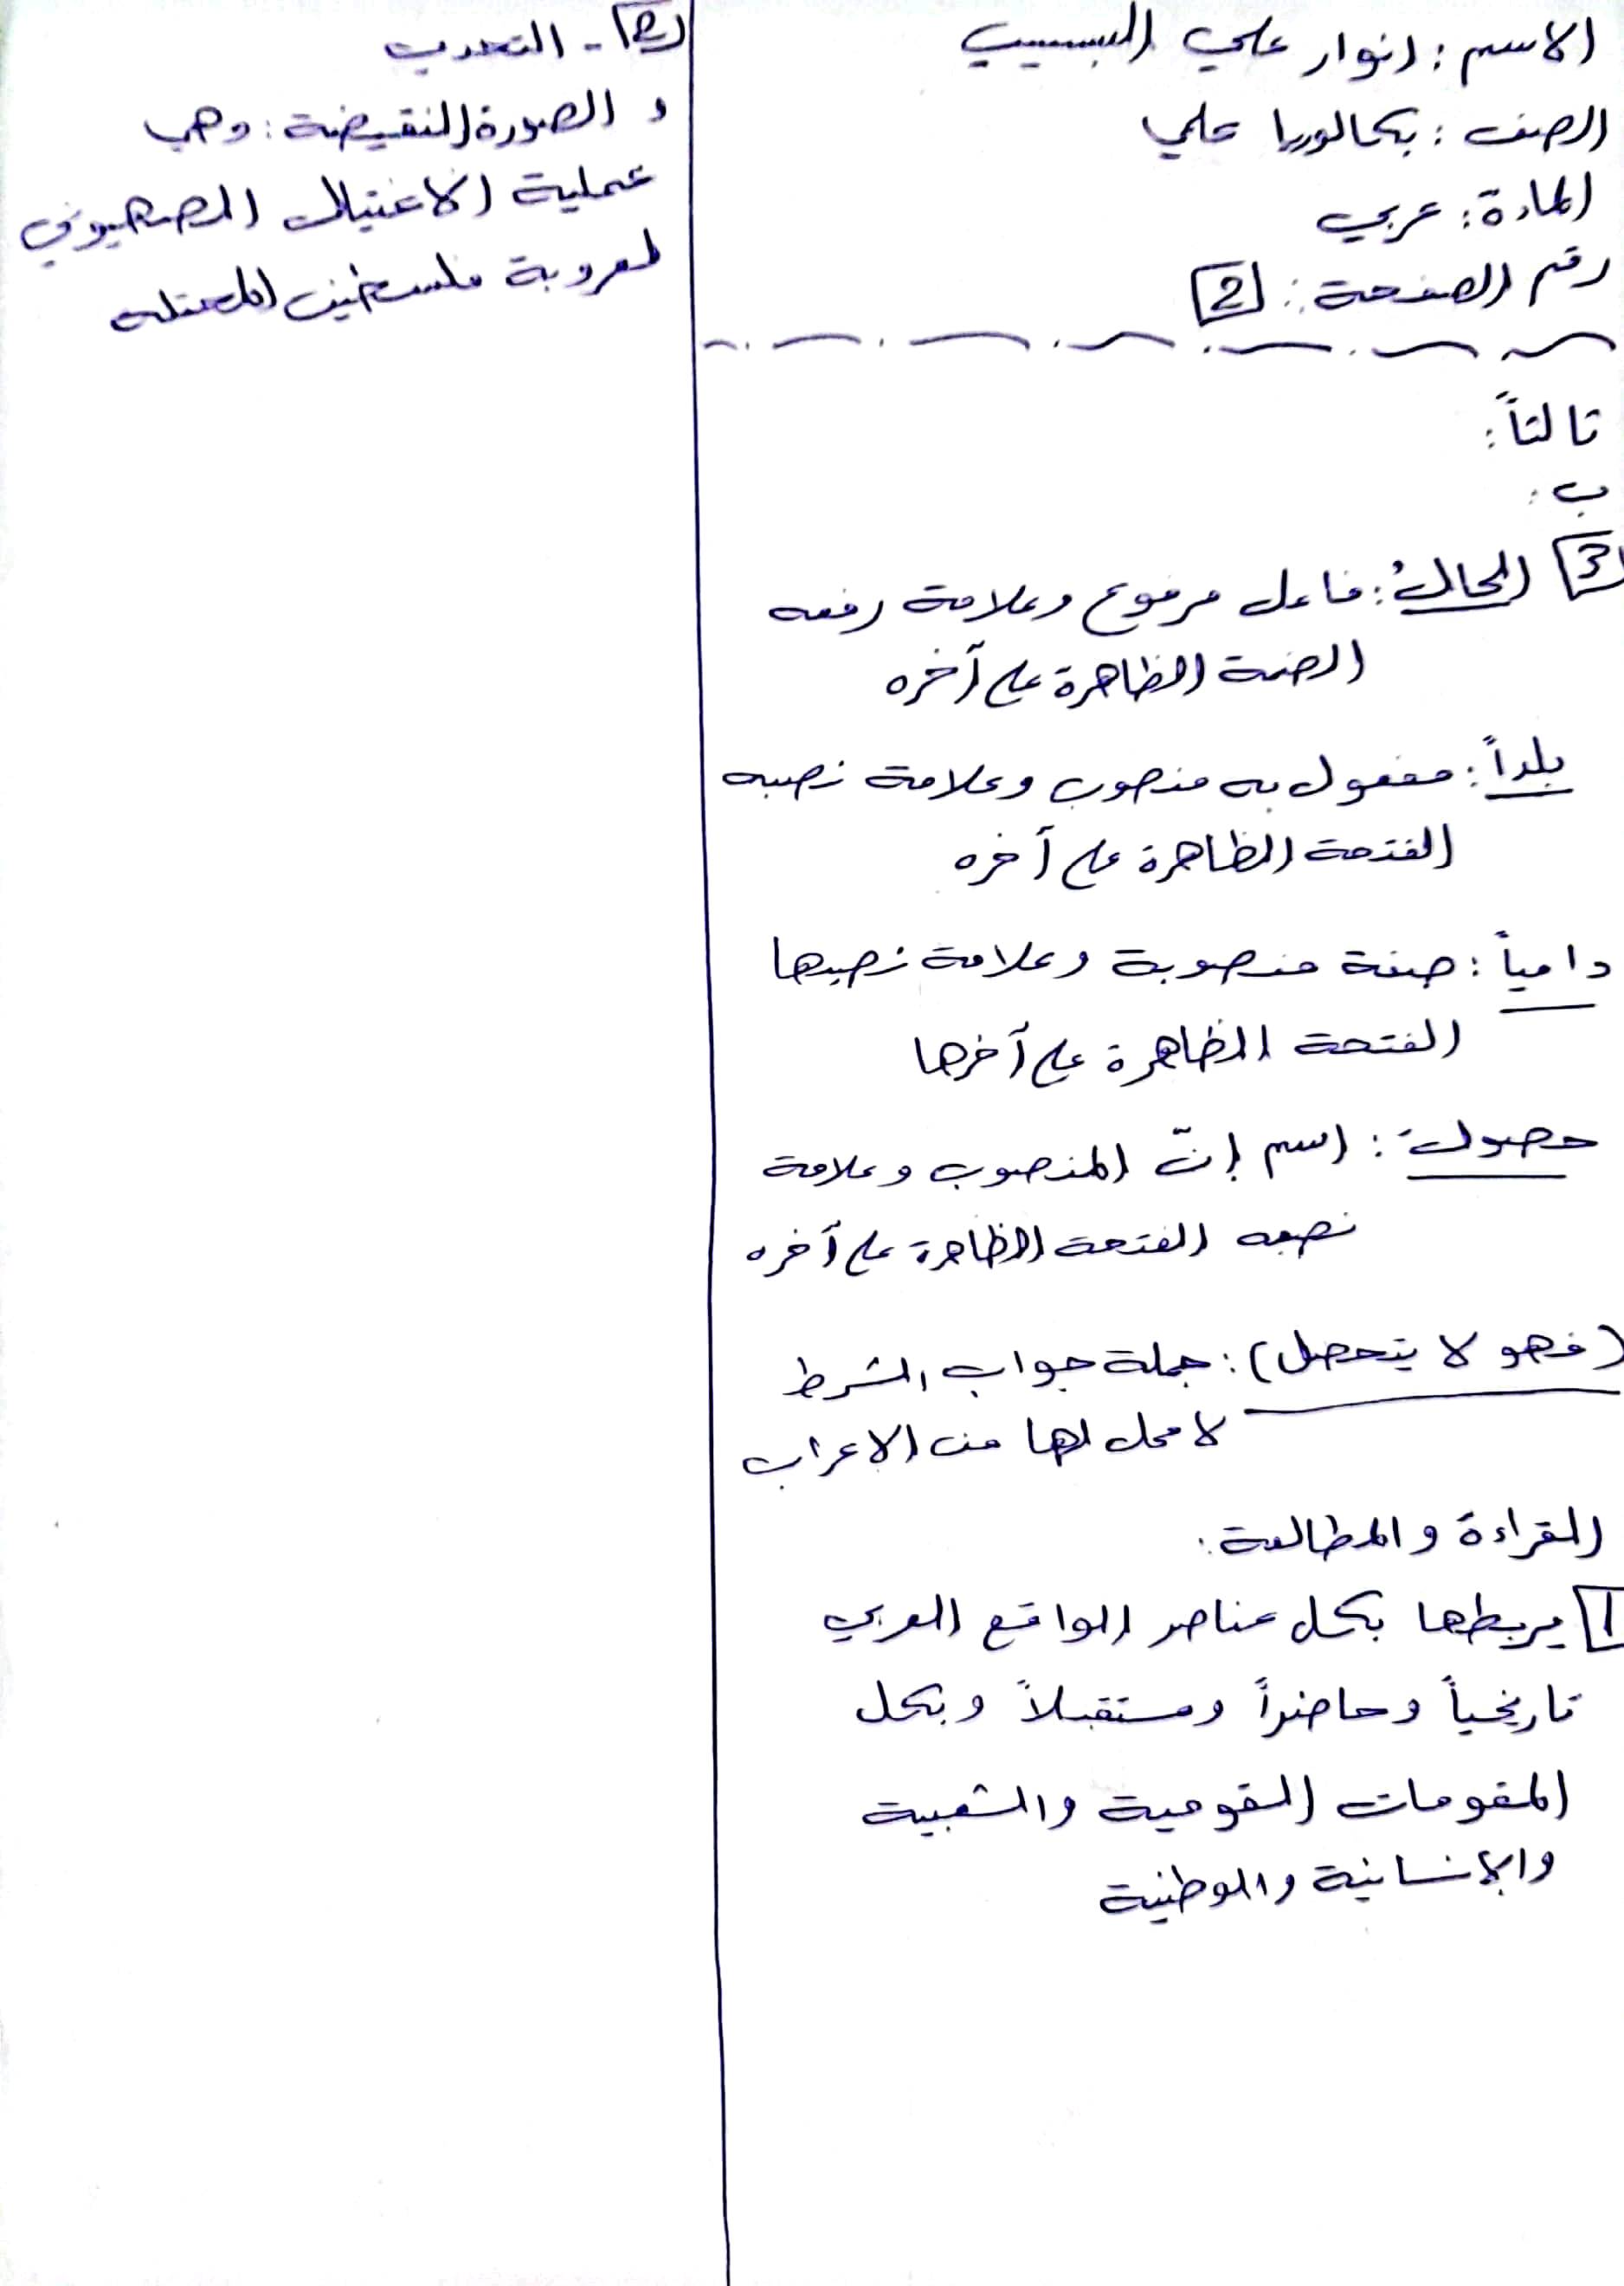 الاسم : انوار علي البسيبي
الصف : بكالوريا علمي
المادة : عربي
رقم الصفحة : 2
ثالثاً :
ب :
3 المحالُ : فاعل مرفوع وعلامة رفعه
الضمة الظاهرة على آخره
بلداً : مفعول به منصوب وعلامة نصبه
الفتحة الظاهرة على آخره
دامياً : صفة منصوبة وعلامة نصبها
الفتحة الظاهرة على آخرها
حصولَ : اسم إنّ المنصوب وعلامة
نصبه الفتحة الظاهرة على آخره
(فهو لا يتحصل) : جملة جواب الشرط
لا محل لها من الاعراب
القراءة والمطالعة :
1 يربطها بكل عناصر الواقع العربي
تاريخياً وحاضراً ومستقبلاً وبكل
المقومات القومية والشعبية
والإنسانية والوطنية
2 - التعريب
و الصورة النقيضة : وهي
عملية الاغتيال الصهيوني
لعروبة فلسطين المحتله